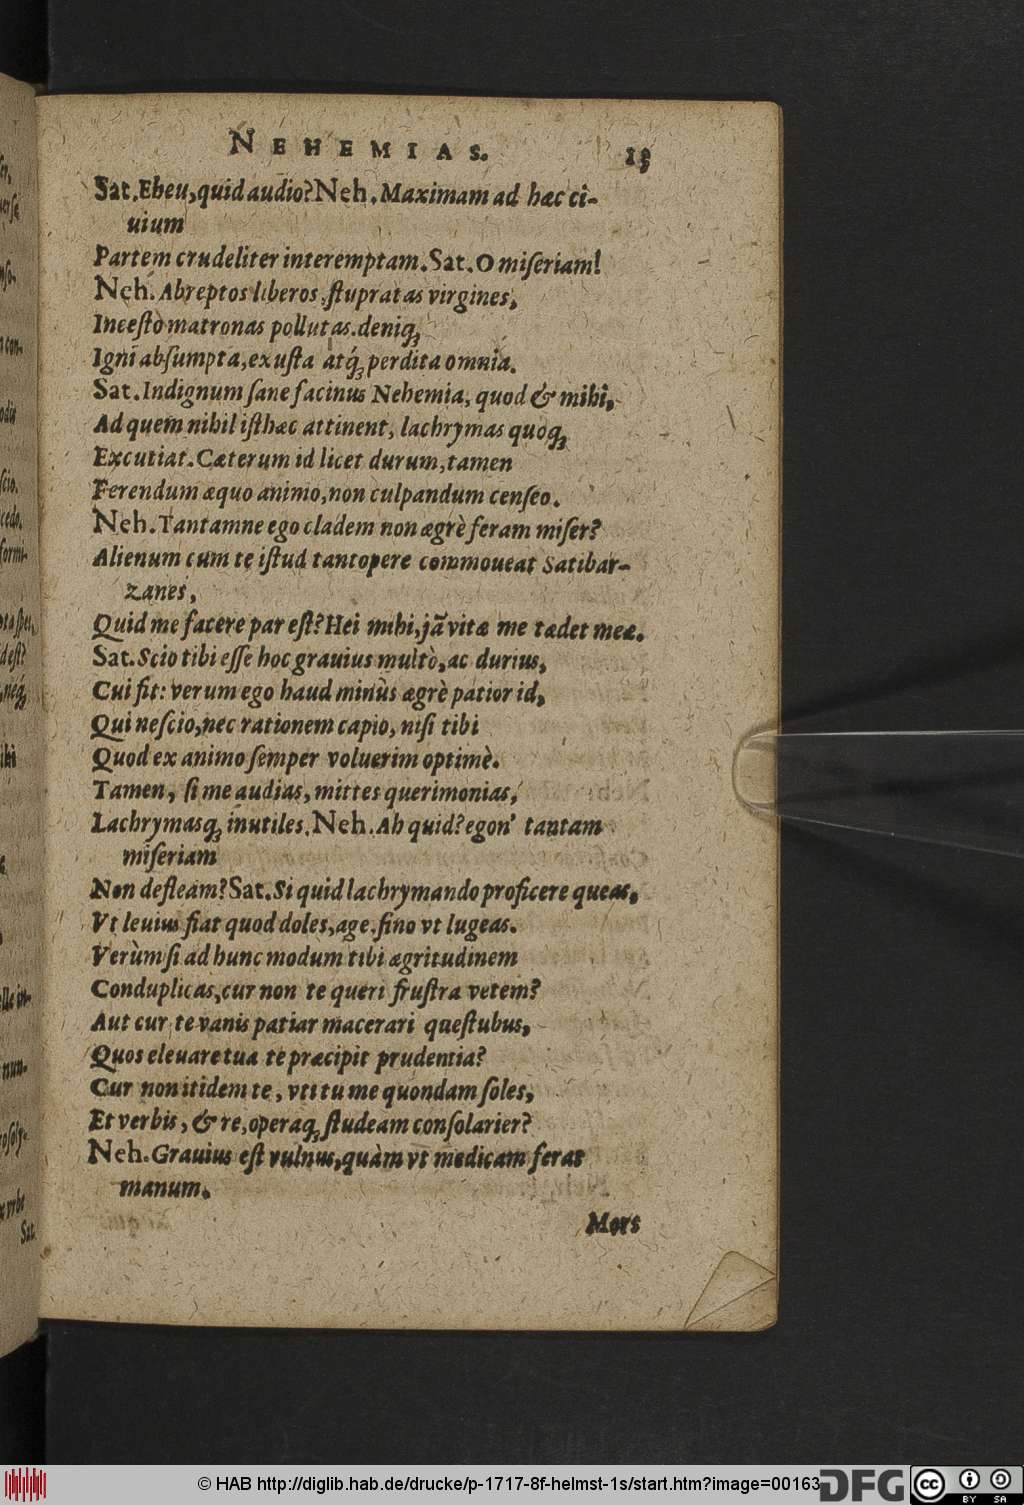 NEHEMIAS. 15
Sat. Eheu, quid audio? Neh. Maximam ad hæc ci-
uium
Partem crudeliter interemptam. Sat. O miſeriam!
Neh. Abreptos liberos, ſtupratas virgines,
Inceſto matronas pollutas. deniq́ꝫ
Igni abſumpta, exuſta atq́ꝫ perdita omnia.
Sat. Indignum ſane facinus Nehemia, quod & mihi,
Ad quem nihil iſthæc attinent, lachrymas quoqꝫ
Excutiat. Cæterum id licet durum, tamen
Ferendum æquo animo, non culpandum cenſeo.
Neh. Tantamne ego cladem non ægrè feram miſer?
Alienum cum te iſtud tantopere commoueat Satibar-
zanes,
Quid me facere par eſt? Hei mihi, jã vitæ me tædet meæ.
Sat. Scio tibi eſſe hoc grauius multò, ac durius,
Cui fit: verum ego haud minùs ægrè patior id,
Qui neſcio, nec rationem capio, niſi tibi
Quod ex animo ſemper voluerim optimè.
Tamen, ſi me audias, mittes querimonias,
Lachrymasqꝫ inutiles. Neh. Ah quid? egon' tantam
miſeriam
Non defleam? Sat. Si quid lachrymando proficere queas,
Vt leuius fiat quod doles, age. ſino vt lugeas.
Verùm ſi ad hunc modum tibi ægritudinem
Conduplicas, cur non te queri fruſtra vetem?
Aut cur te vanis patiar macerari queſtubus,
Quos eleuare tua te præcipit prudentia?
Cur non itidem te, vti tu me quondam ſoles,
Et verbis, & re, operaqꝫ ſtudeam conſolarier?
Neh. Grauius eſt vulnus, quàm vt medicam ferat
manum.
Mors
© HAB http://diglib.hab.de/drucke/p-1717-8f-helmst-1s/start.htm?image=00163
DFG
cc BY SA